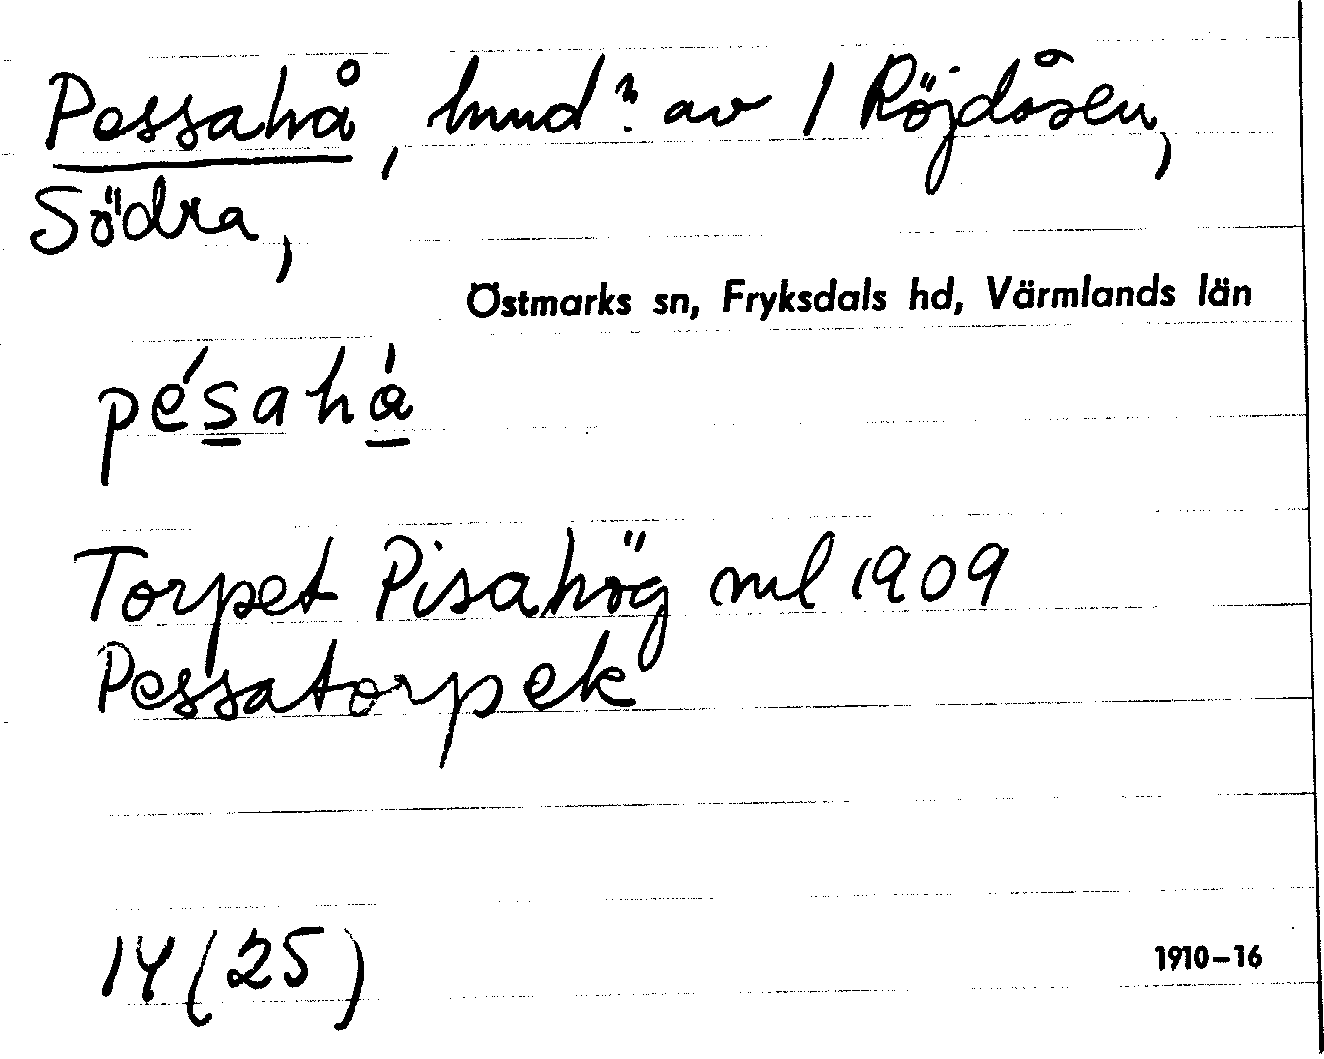 Pessahå, hmd? av 1 Röjdåsen,
Södra,
Östmarks sn, Fryksdals hd, Värmlands län
pésahá
Torpet Pisahög ml 1909
Pessatorpek
14 (25)
1910-16